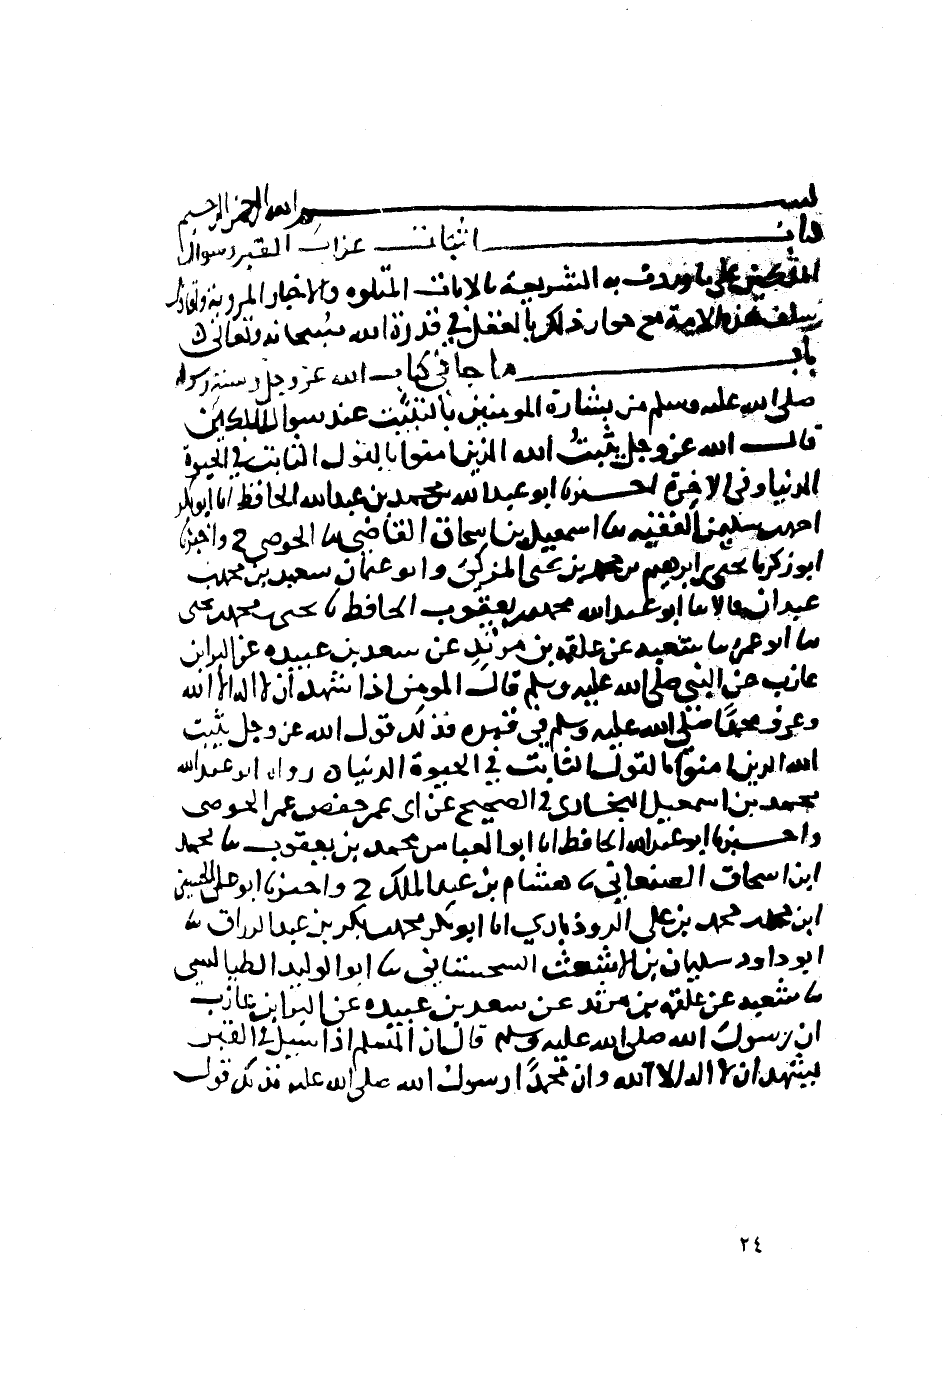 بسم الله الرحمن الرحيم
باب اثبات عذاب القبر وسوال
الملكين على ما وردت به الشريعة بالايات المتلوه والاخبار المروية واقاويل
سلف هذه الامة مع جواز ذلك بالعقل في قدرة الله سبحانه وتعالى
باب ما جا في كتاب الله عز وجل وسنة رسوله
صلى الله عليه وسلم من بشارة المومنين بالتثبيت عند سوال الملكين
قال الله عز وجل يثبت الله الذين امنوا بالقول الثابت في الحيوة
الدنيا وفي الاخرة اخبرنا ابو عبد الله محمد بن عبد الله الحافظ انا ابو بكر
احمد بن سلمن الفقيه نا اسمعيل بن اسحاق القاضي نا الحوضي ح واخبرنا
ابو زكريا يحيى بن ابرهيم بن محمد بن يحيى المزكي وابو عثمان سعيد بن محمد بن
عبدان قالا نا ابو عبد الله محمد بن يعقوب الحافظ نا يحيى بن محمد بن يحيى
نا ابو عمر نا شعبه عن علقمه بن مرثد عن سعد بن عبيده عن البرا بن
عازب عن النبي صلى الله عليه وسلم قال المومن اذا شهد ان لا اله الا الله
وعرف محمدا صلى الله عليه وسلم في قبره فذلك قول الله عز وجل يثبت
الله الذين امنوا بالقول الثابت في الحيوة الدنيا رواه ابو عبد الله
محمد بن اسمعيل البخاري في الصحيح عن ابي عمر حفص بن عمر الحوضي
واخبرنا ابو عبد الله الحافظ انا ابو العباس محمد بن يعقوب نا محمد
ابن اسحاق الصنعاني نا هشام بن عبد الملك ح واخبرنا ابو علي الحسين
ابن محمد بن محمد بن علي الروذباري انا ابو بكر محمد بن بكر بن عبد الرزاق نا
ابو داود سليمان بن الاشعث السجستاني نا ابو الوليد الطيالسي
نا شعبه عن علقمه بن مرثد عن سعد بن عبيده عن البرا بن عازب
ان رسول الله صلى الله عليه وسلم قال ان المسلم اذا سيل في القبر
يشهد ان لا اله الا الله وان محمدا رسول الله صلى الله عليه فذلك قول
٢٤